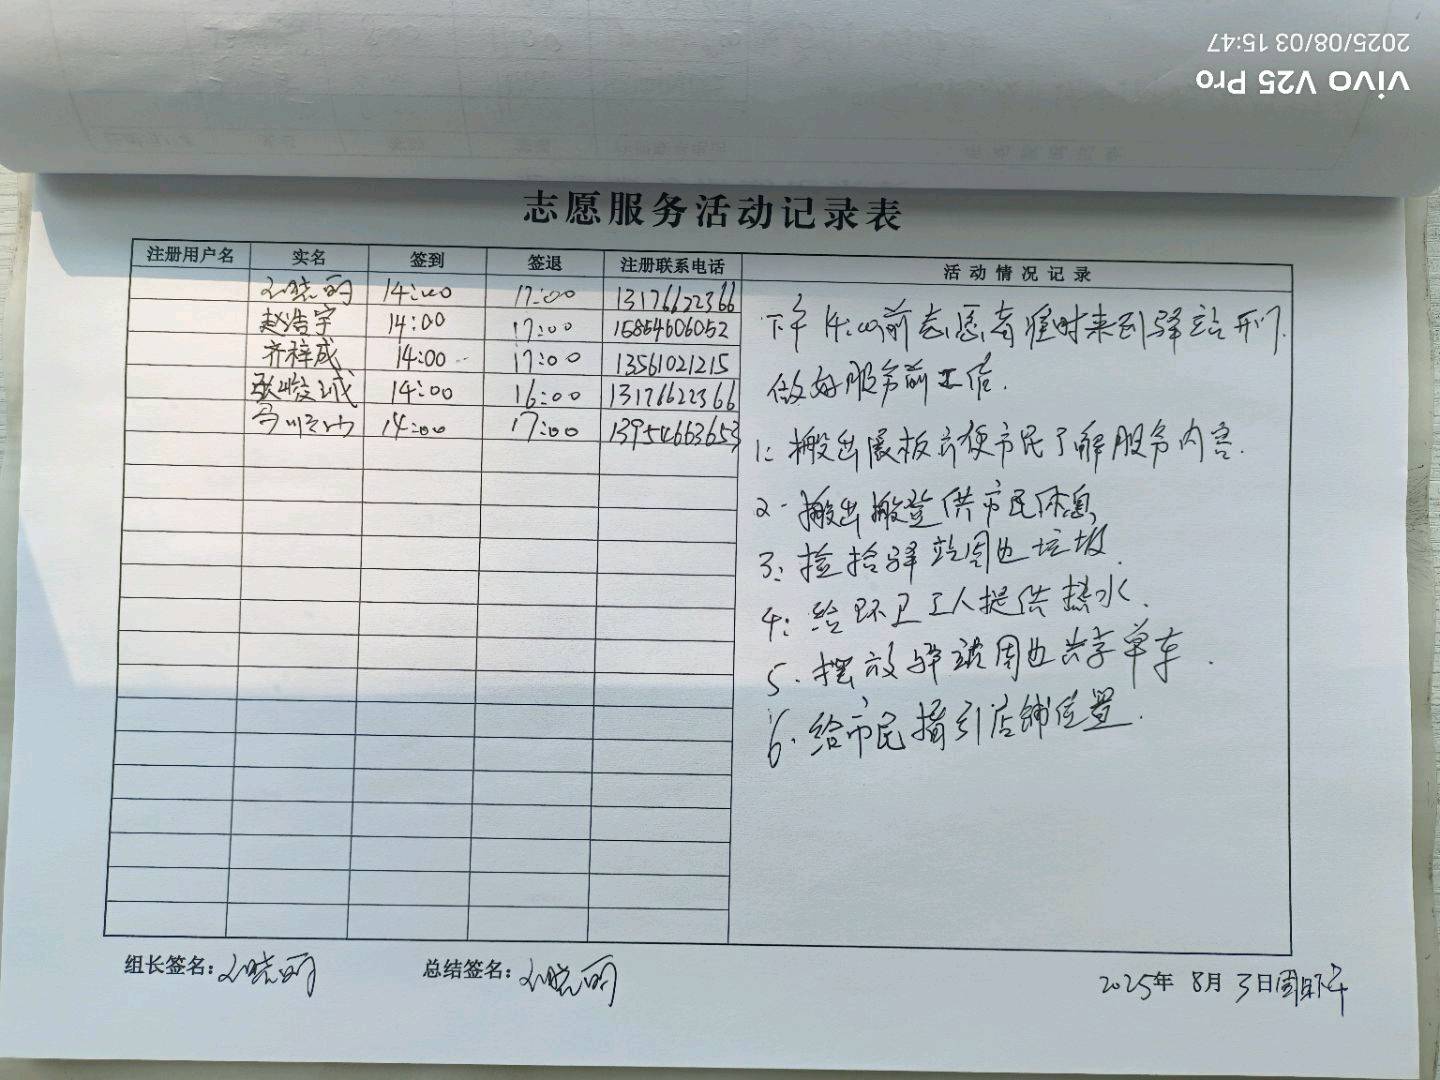 2025/08/03 15:47
vivo V25 Pro
志愿服务活动记录表
注册用户名 实名 签到 签退 注册联系电话 活动情况记录
刘晓丽 14:00 17:00 13176622366
赵浩宇 14:00 17:00 15854606052
齐梓成 14:00 17:00 13561021215
14:00 16:00 13176622366
14:00 17:00 13954663653
下午14:00前志愿者准时来到驿站开门.
做好服务前工作.
1: 搬出展板方便市民了解服务内容.
2. 搬出搬登供市民休息
3: 捡拾驿站周边垃圾.
4: 给环卫工人提供热水.
5. 摆放驿站周边共享单车.
6. 给市民指引店铺位置.
组长签名: 刘晓丽 总结签名: 刘晓丽 2025年 8月 3日周日下午